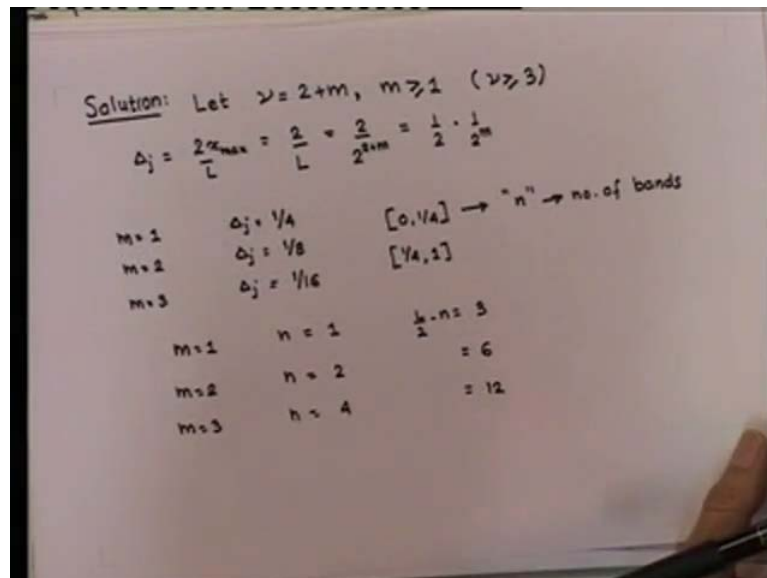 Solution: Let ν = 2+m, m ≥ 1 (ν ≥ 3)
Δj = 2x_max / L = 2/L = 2/2^(2+m) = 1/2 · 1/2^m
m = 1 Δj = 1/4 [0, 1/4] → "n" → no. of bands
m = 2 Δj = 1/8 [1/4, 1]
m = 3 Δj = 1/16
m = 1 n = 1 L/2 - n = 3
m = 2 n = 2 = 6
m = 3 n = 4 = 12